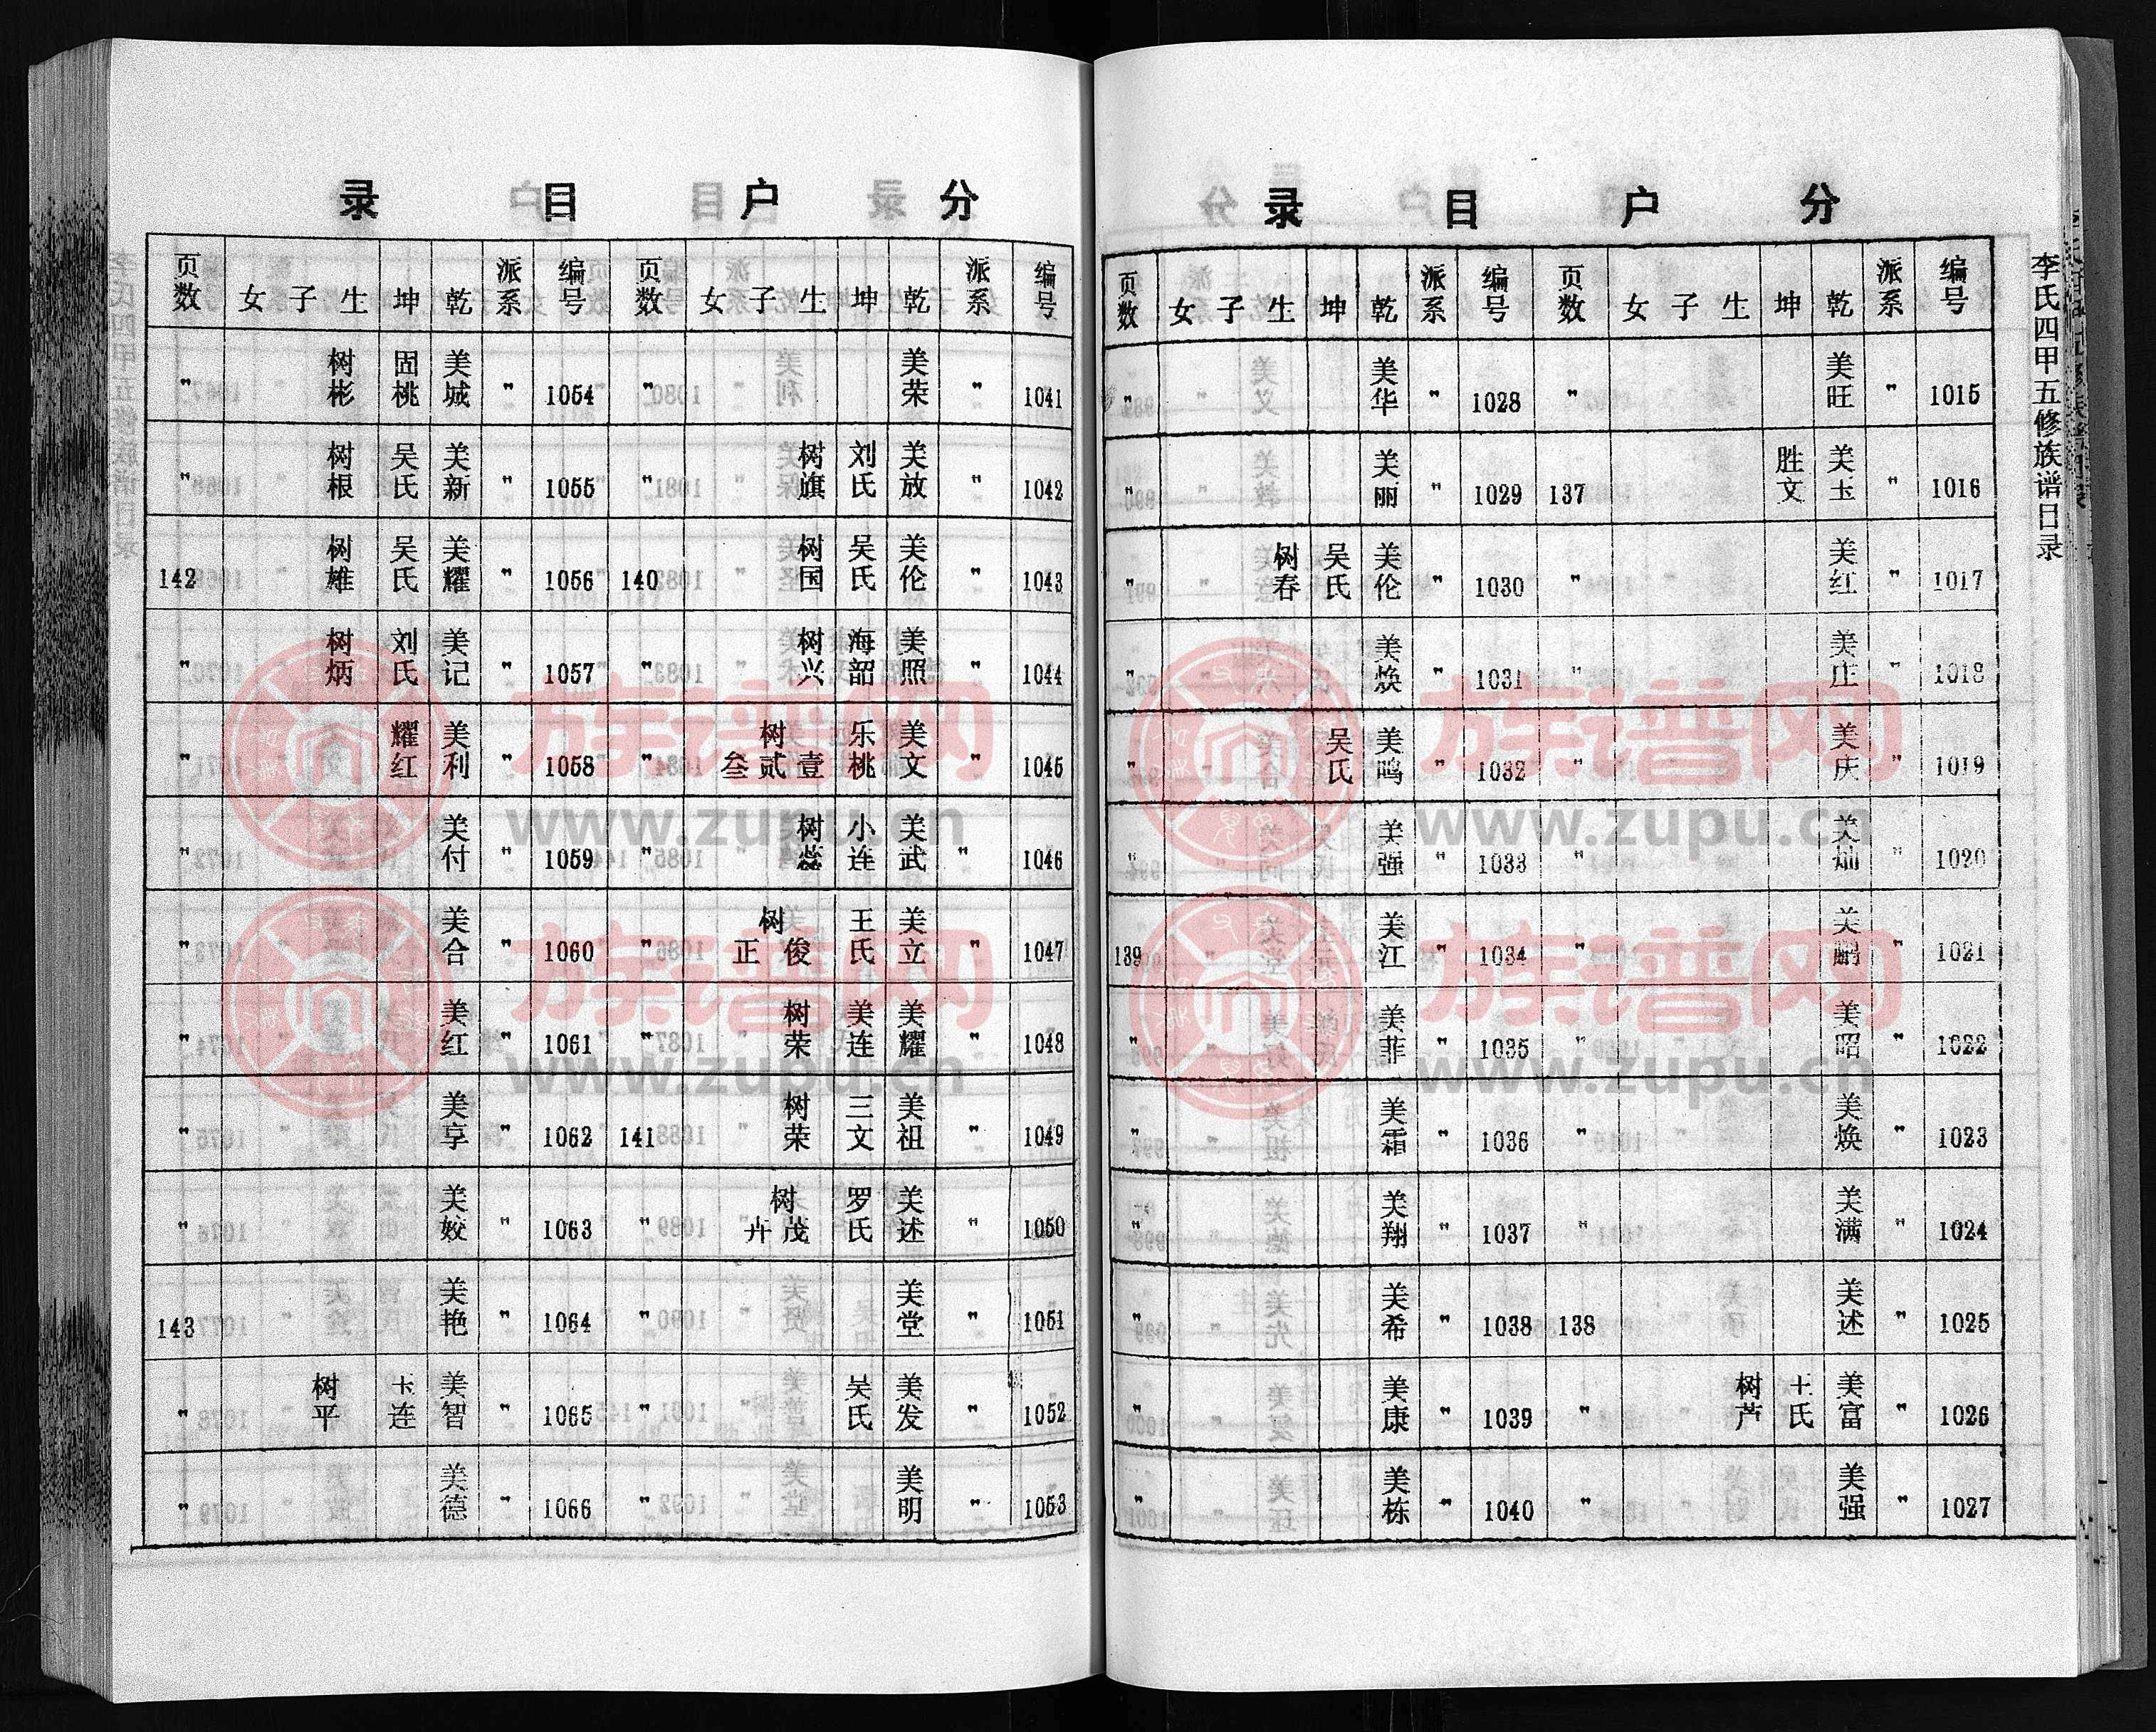 李氏四甲五修族谱目录
分户目录
编号 派系 乾 坤 生子女 页数 编号 派系 乾 坤 生子女 页数
1015 〃 美旺 〃 1028 〃 美华
1016 〃 美玉 胜文 137 1029 〃 美丽 〃
1017 〃 美红 〃 1030 〃 美伦 吴氏 树春 〃
1018 〃 美庄 〃 1031 〃 美焕 〃
1019 〃 美庆 〃 1032 〃 美鸣 吴氏 〃
1020 〃 美灿 〃 1033 〃 美强 〃
1021 〃 美鹏 〃 1034 〃 美江 139
1022 〃 美昭 〃 1035 〃 美菲 〃
1023 〃 美焕 〃 1036 〃 美霜 〃
1024 〃 美满 〃 1037 〃 美翔 〃
1025 〃 美述 138 1038 〃 美希 〃
1026 〃 美富 王氏 树芦 〃 1039 〃 美康 〃
1027 〃 美强 〃 1040 〃 美栋 〃
分户目录
编号 派系 乾 坤 生子女 页数 编号 派系 乾 坤 生子女 页数
1041 〃 美荣 〃 1054 〃 美城 固桃 树彬 〃
1042 〃 美放 刘氏 树旗 〃 1055 〃 美新 吴氏 树根 〃
1043 〃 美伦 吴氏 树国 140 1056 〃 美耀 吴氏 树雄 142
1044 〃 美照 海韶 树兴 〃 1057 〃 美记 刘氏 树炳 〃
1045 〃 美文 乐桃 树壹贰叁 〃 1058 〃 美利 耀红 〃
1046 〃 美武 小连 树蕊 〃 1059 〃 美付 〃
1047 〃 美立 王氏 树俊正 〃 1060 〃 美合 〃
1048 〃 美耀 美连 树荣 〃 1061 〃 美红 〃
1049 〃 美祖 三文 树荣 141 1062 〃 美享 〃
1050 〃 美述 罗氏 树茂卉 〃 1063 〃 美姣 〃
1051 〃 美堂 〃 1064 〃 美艳 143
1052 〃 美发 吴氏 〃 1065 〃 美智 玉连 树平 〃
1053 〃 美明 〃 1066 〃 美德 〃
族谱网
www.zupu.cn
族谱网
www.zupu.cn
族谱网
www.zupu.cn
族谱网
www.zupu.cn